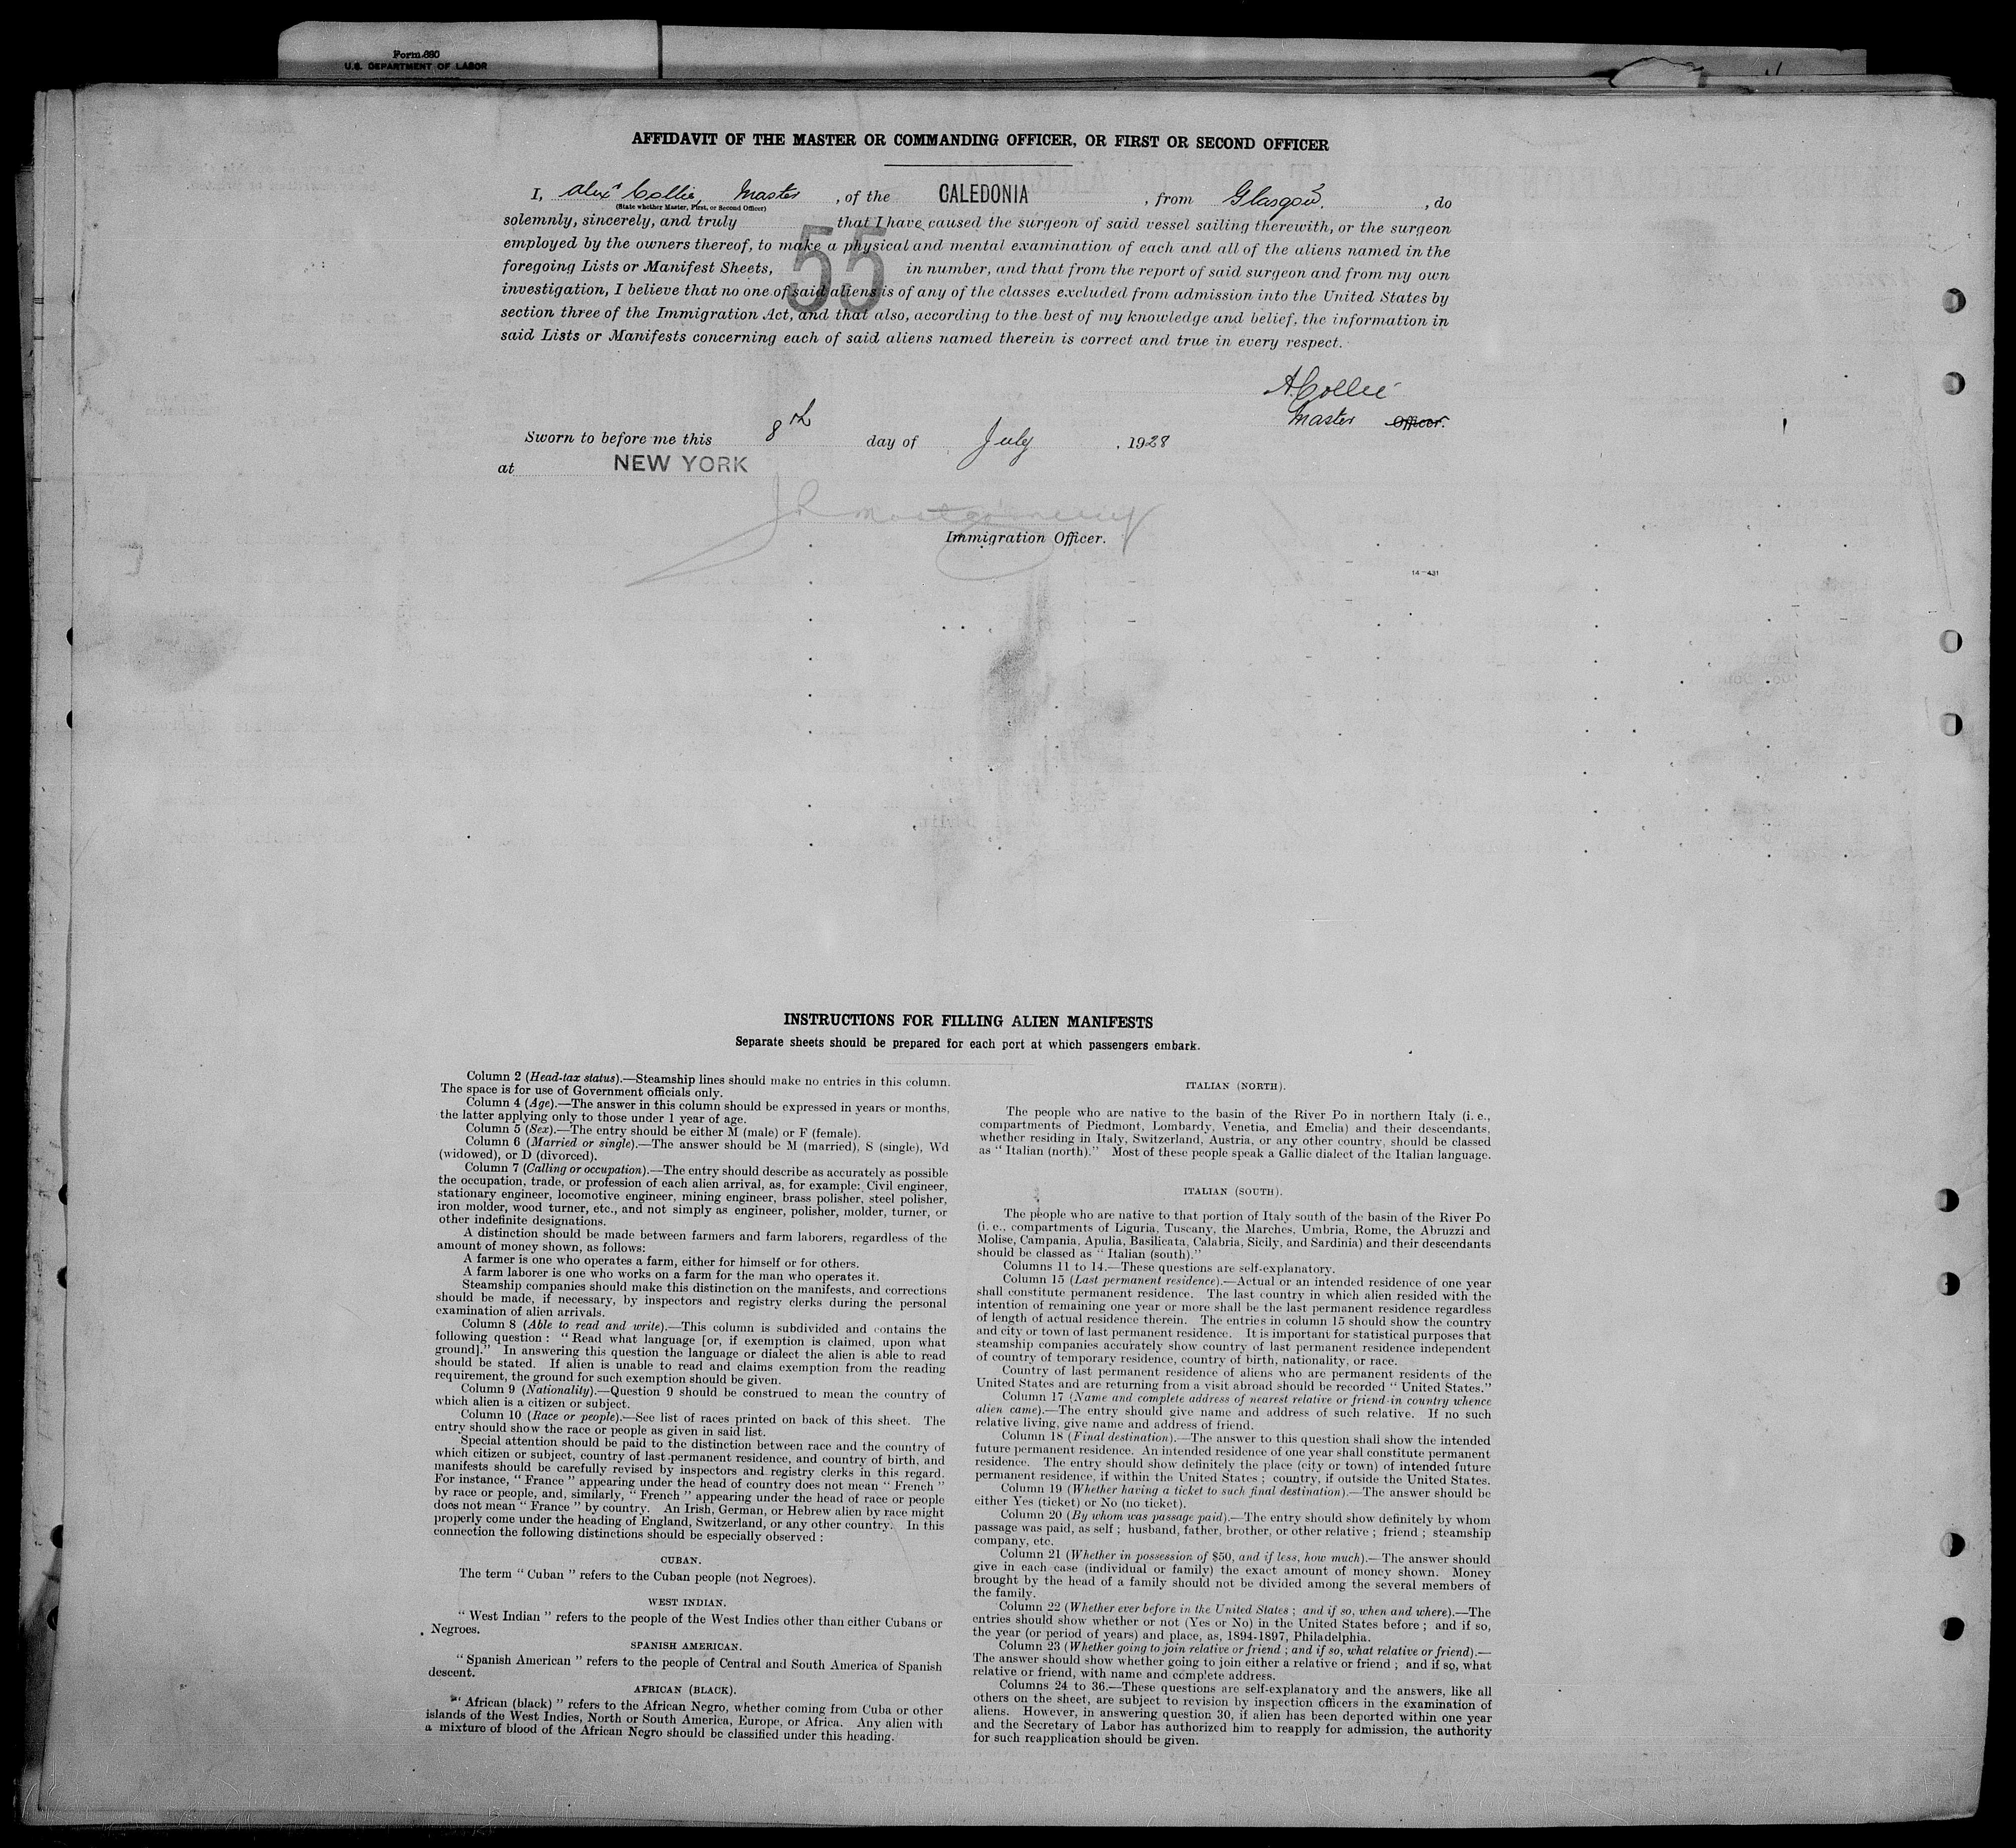 Form 680
U.S. DEPARTMENT OF LABOR
AFFIDAVIT OF THE MASTER OR COMMANDING OFFICER, OR FIRST OR SECOND OFFICER
I, Alexr Collie, Master , of the CALEDONIA , from Glasgow. , do
(State whether Master, First, or Second Officer)
solemnly, sincerely, and truly that I have caused the surgeon of said vessel sailing therewith, or the surgeon
employed by the owners thereof, to make a physical and mental examination of each and all of the aliens named in the
foregoing Lists or Manifest Sheets, 55 in number, and that from the report of said surgeon and from my own
investigation, I believe that no one of said aliens is of any of the classes excluded from admission into the United States by
section three of the Immigration Act, and that also, according to the best of my knowledge and belief, the information in
said Lists or Manifests concerning each of said aliens named therein is correct and true in every respect.
A. Collie
Master Officer.
Sworn to before me this 8th day of July , 1928
at NEW YORK
Montgomery
Immigration Officer.
14—431
INSTRUCTIONS FOR FILLING ALIEN MANIFESTS
Separate sheets should be prepared for each port at which passengers embark.
Column 2 (Head-tax status).—Steamship lines should make no entries in this column.
The space is for use of Government officials only.
Column 4 (Age).—The answer in this column should be expressed in years or months,
the latter applying only to those under 1 year of age.
Column 5 (Sex).—The entry should be either M (male) or F (female).
Column 6 (Married or single).—The answer should be M (married), S (single), Wd
(widowed), or D (divorced).
Column 7 (Calling or occupation).—The entry should describe as accurately as possible
the occupation, trade, or profession of each alien arrival, as, for example: Civil engineer,
stationary engineer, locomotive engineer, mining engineer, brass polisher, steel polisher,
iron molder, wood turner, etc., and not simply as engineer, polisher, molder, turner, or
other indefinite designations.
A distinction should be made between farmers and farm laborers, regardless of the
amount of money shown, as follows:
A farmer is one who operates a farm, either for himself or for others.
A farm laborer is one who works on a farm for the man who operates it.
Steamship companies should make this distinction on the manifests, and corrections
should be made, if necessary, by inspectors and registry clerks during the personal
examination of alien arrivals.
Column 8 (Able to read and write).—This column is subdivided and contains the
following question : “ Read what language [or, if exemption is claimed, upon what
ground].” In answering this question the language or dialect the alien is able to read
should be stated. If alien is unable to read and claims exemption from the reading
requirement, the ground for such exemption should be given.
Column 9 (Nationality).—Question 9 should be construed to mean the country of
which alien is a citizen or subject.
Column 10 (Race or people).—See list of races printed on back of this sheet. The
entry should show the race or people as given in said list.
Special attention should be paid to the distinction between race and the country of
which citizen or subject, country of last permanent residence, and country of birth, and
manifests should be carefully revised by inspectors and registry clerks in this regard.
For instance, “ France ” appearing under the head of country does not mean “ French ”
by race or people, and, similarly, “ French ” appearing under the head of race or people
does not mean “ France ” by country. An Irish, German, or Hebrew alien by race might
properly come under the heading of England, Switzerland, or any other country. In this
connection the following distinctions should be especially observed :
CUBAN.
The term “ Cuban ” refers to the Cuban people (not Negroes).
WEST INDIAN.
“ West Indian ” refers to the people of the West Indies other than either Cubans or
Negroes.
SPANISH AMERICAN.
“ Spanish American ” refers to the people of Central and South America of Spanish
descent.
AFRICAN (BLACK).
“ African (black) ” refers to the African Negro, whether coming from Cuba or other
islands of the West Indies, North or South America, Europe, or Africa. Any alien with
a mixture of blood of the African Negro should be classified under this heading.
ITALIAN (NORTH).
The people who are native to the basin of the River Po in northern Italy (i. e.,
compartments of Piedmont, Lombardy, Venetia, and Emelia) and their descendants,
whether residing in Italy, Switzerland, Austria, or any other country, should be classed
as “ Italian (north).” Most of these people speak a Gallic dialect of the Italian language.
ITALIAN (SOUTH).
The people who are native to that portion of Italy south of the basin of the River Po
(i. e., compartments of Liguria, Tuscany, the Marches, Umbria, Rome, the Abruzzi and
Molise, Campania, Apulia, Basilicata, Calabria, Sicily, and Sardinia) and their descendants
should be classed as “ Italian (south).”
Columns 11 to 14.—These questions are self-explanatory.
Column 15 (Last permanent residence).—Actual or an intended residence of one year
shall constitute permanent residence. The last country in which alien resided with the
intention of remaining one year or more shall be the last permanent residence regardless
of length of actual residence therein. The entries in column 15 should show the country
and city or town of last permanent residence. It is important for statistical purposes that
steamship companies accurately show country of last permanent residence independent
of country of temporary residence, country of birth, nationality, or race.
Country of last permanent residence of aliens who are permanent residents of the
United States and are returning from a visit abroad should be recorded “ United States.”
Column 17 (Name and complete address of nearest relative or friend in country whence
alien came).—The entry should give name and address of such relative. If no such
relative living, give name and address of friend.
Column 18 (Final destination).—The answer to this question shall show the intended
future permanent residence. An intended residence of one year shall constitute permanent
residence. The entry should show definitely the place (city or town) of intended future
permanent residence, if within the United States ; country, if outside the United States.
Column 19 (Whether having a ticket to such final destination).—The answer should be
either Yes (ticket) or No (no ticket).
Column 20 (By whom was passage paid).—The entry should show definitely by whom
passage was paid, as self ; husband, father, brother, or other relative ; friend ; steamship
company, etc.
Column 21 (Whether in possession of $50, and if less, how much).—The answer should
give in each case (individual or family) the exact amount of money shown. Money
brought by the head of a family should not be divided among the several members of
the family.
Column 22 (Whether ever before in the United States ; and if so, when and where).—The
entries should show whether or not (Yes or No) in the United States before ; and if so,
the year (or period of years) and place, as, 1894-1897, Philadelphia.
Column 23 (Whether going to join relative or friend ; and if so, what relative or friend).—
The answer should show whether going to join either a relative or friend ; and if so, what
relative or friend, with name and complete address.
Columns 24 to 36.—These questions are self-explanatory and the answers, like all
others on the sheet, are subject to revision by inspection officers in the examination of
aliens. However, in answering question 30, if alien has been deported within one year
and the Secretary of Labor has authorized him to reapply for admission, the authority
for such reapplication should be given.